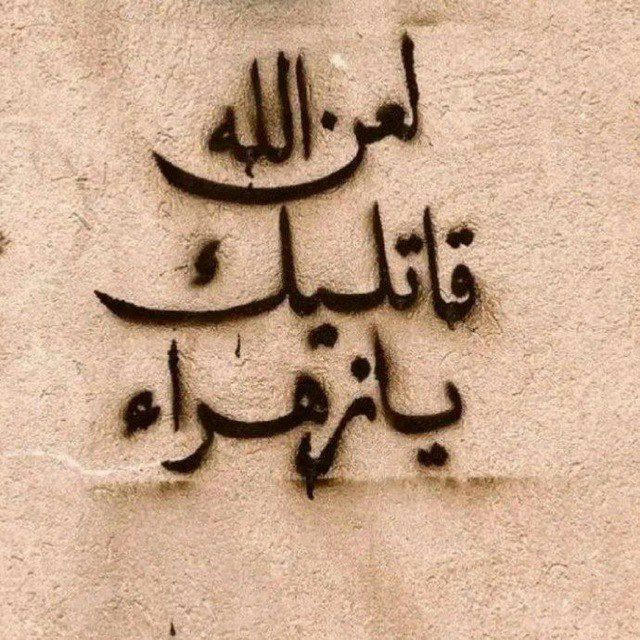 لعن الله
قاتليك
يا زهراء